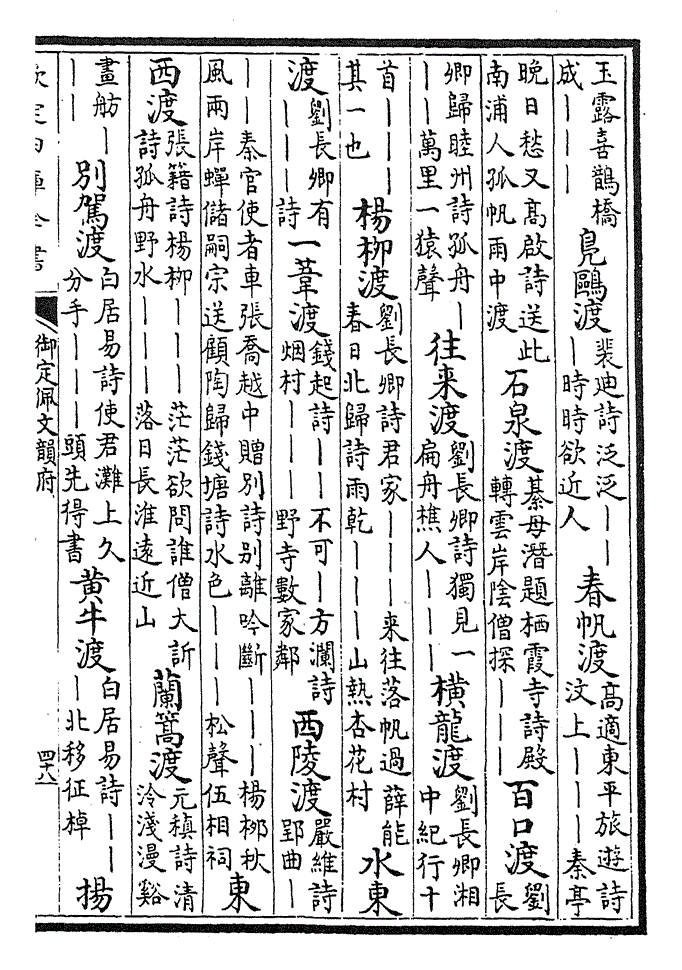 玉露喜鵲橋成｜｜｜鳧鷗渡裴迪詩泛泛｜｜｜時時欲近人春帆渡高適東平旅遊詩汶上｜｜｜秦亭
晚日愁又高啟詩送此南浦人孤帆雨中渡石泉渡綦毋潛題栖霞寺詩殿轉雲岸陰僧探｜｜｜百口渡劉長
卿歸睦州詩孤舟｜｜｜萬里一猿聲往来渡劉長卿詩獨見一扁舟樵人｜｜｜橫龍渡劉長卿湘中紀行十
首｜｜｜其一也楊柳渡劉長卿詩君家｜｜｜来往落帆過薛能春日北歸詩雨乾｜｜｜山熱杏花村水東
渡劉長卿有｜｜｜詩一葦渡錢起詩｜｜不可｜方瀾詩烟村｜｜｜野寺數家鄰西陵渡嚴維詩郢曲｜
｜｜秦官使者車張喬越中贈別詩别離吟斷｜｜｜楊柳秋風雨岸蟬儲嗣宗送顧陶歸錢塘詩水色｜｜｜松聲伍相祠東
西渡張籍詩楊柳｜｜｜茫茫欲問誰僧大訢詩孤舟野水｜｜｜落日長淮遠近山蘭篙渡元稹詩清泠淺漫谿
畫舫｜｜｜別駕渡白居易詩使君灘上久分手｜｜｜頭先得書黄牛渡白居易詩｜｜｜北移征棹揚
欽定四庫全書
御定佩文韻府
四十八